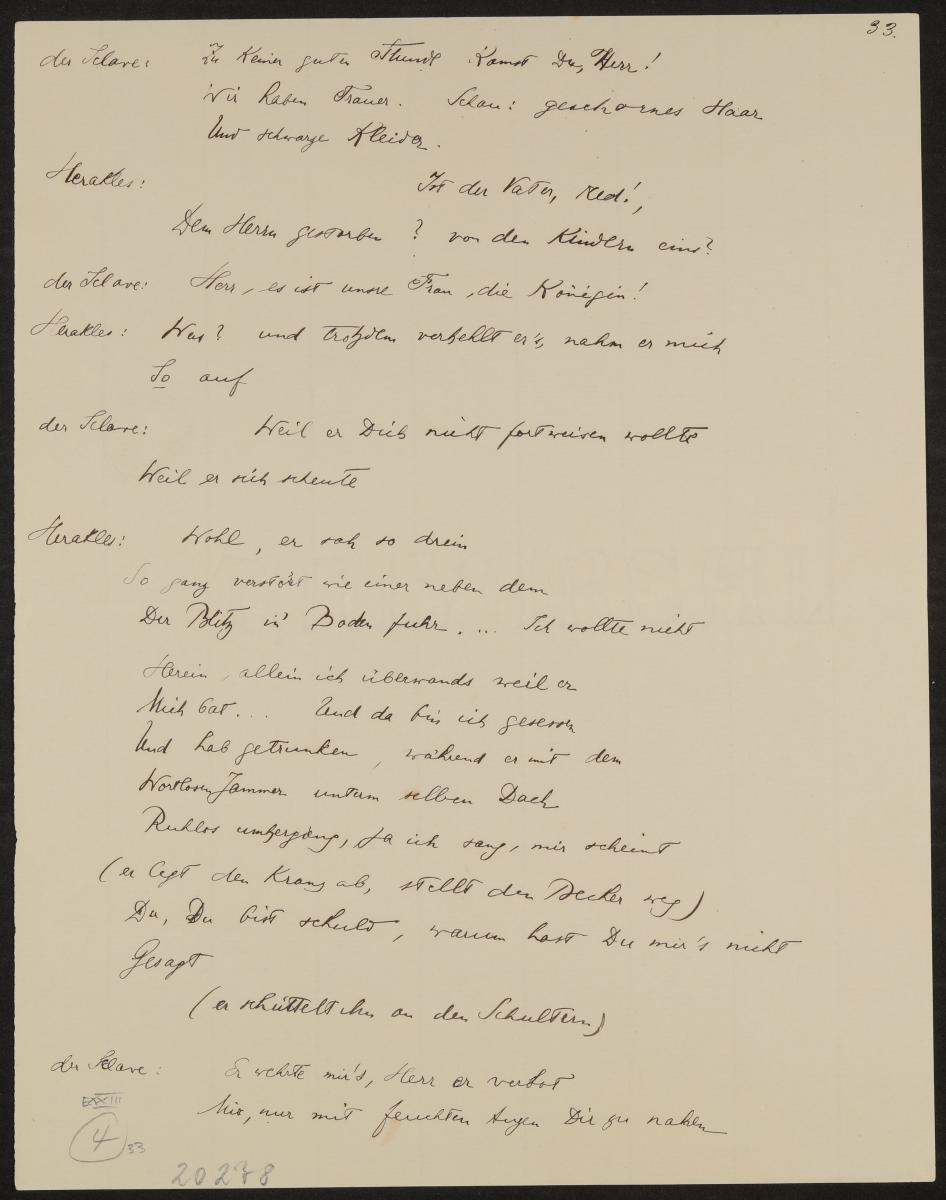 33.
der Sclave: Zu keiner guten Stunde kamst Du, Herr!
Wir haben Trauer. Schau: geschornes Haar
Und schwarze Kleider.
Herakles: Ist der Vater, red!,
Dem Herrn gestorben? von den Kindern eins?
der Sclave: Herr, es ist unsre Frau, die Königin!
Herakles: Was? und trotzdem verhehlt er's, nahm er mich
So auf
der Sclave: Weil er Dich nicht fortweisen wollte
Weil er sich scheute
Herakles: Wohl, er sah so drein
So ganz verstört wie einer neben dem
Der Blitz in' Boden fuhr. ... Ich wollte nicht
Herein, allein ich überwands weil er
Mich bat... Und da bin ich gesessen
Und hab getrunken, während er mit dem
Wortlosen Jammer unterm selben Dach
Ruhlos umherging, ja ich sang, mir scheint
(er legt den Kranz ab, stellt den Becher weg)
Du, Du bist schuld, warum hast Du mir's nicht
Gesagt
(er schüttelt ihn an den Schultern)
der Sclave: Er wehrte mir's, Herr er verbot
Mir, nur mit feuchten Augen Dir zu nahen
4 33
20278